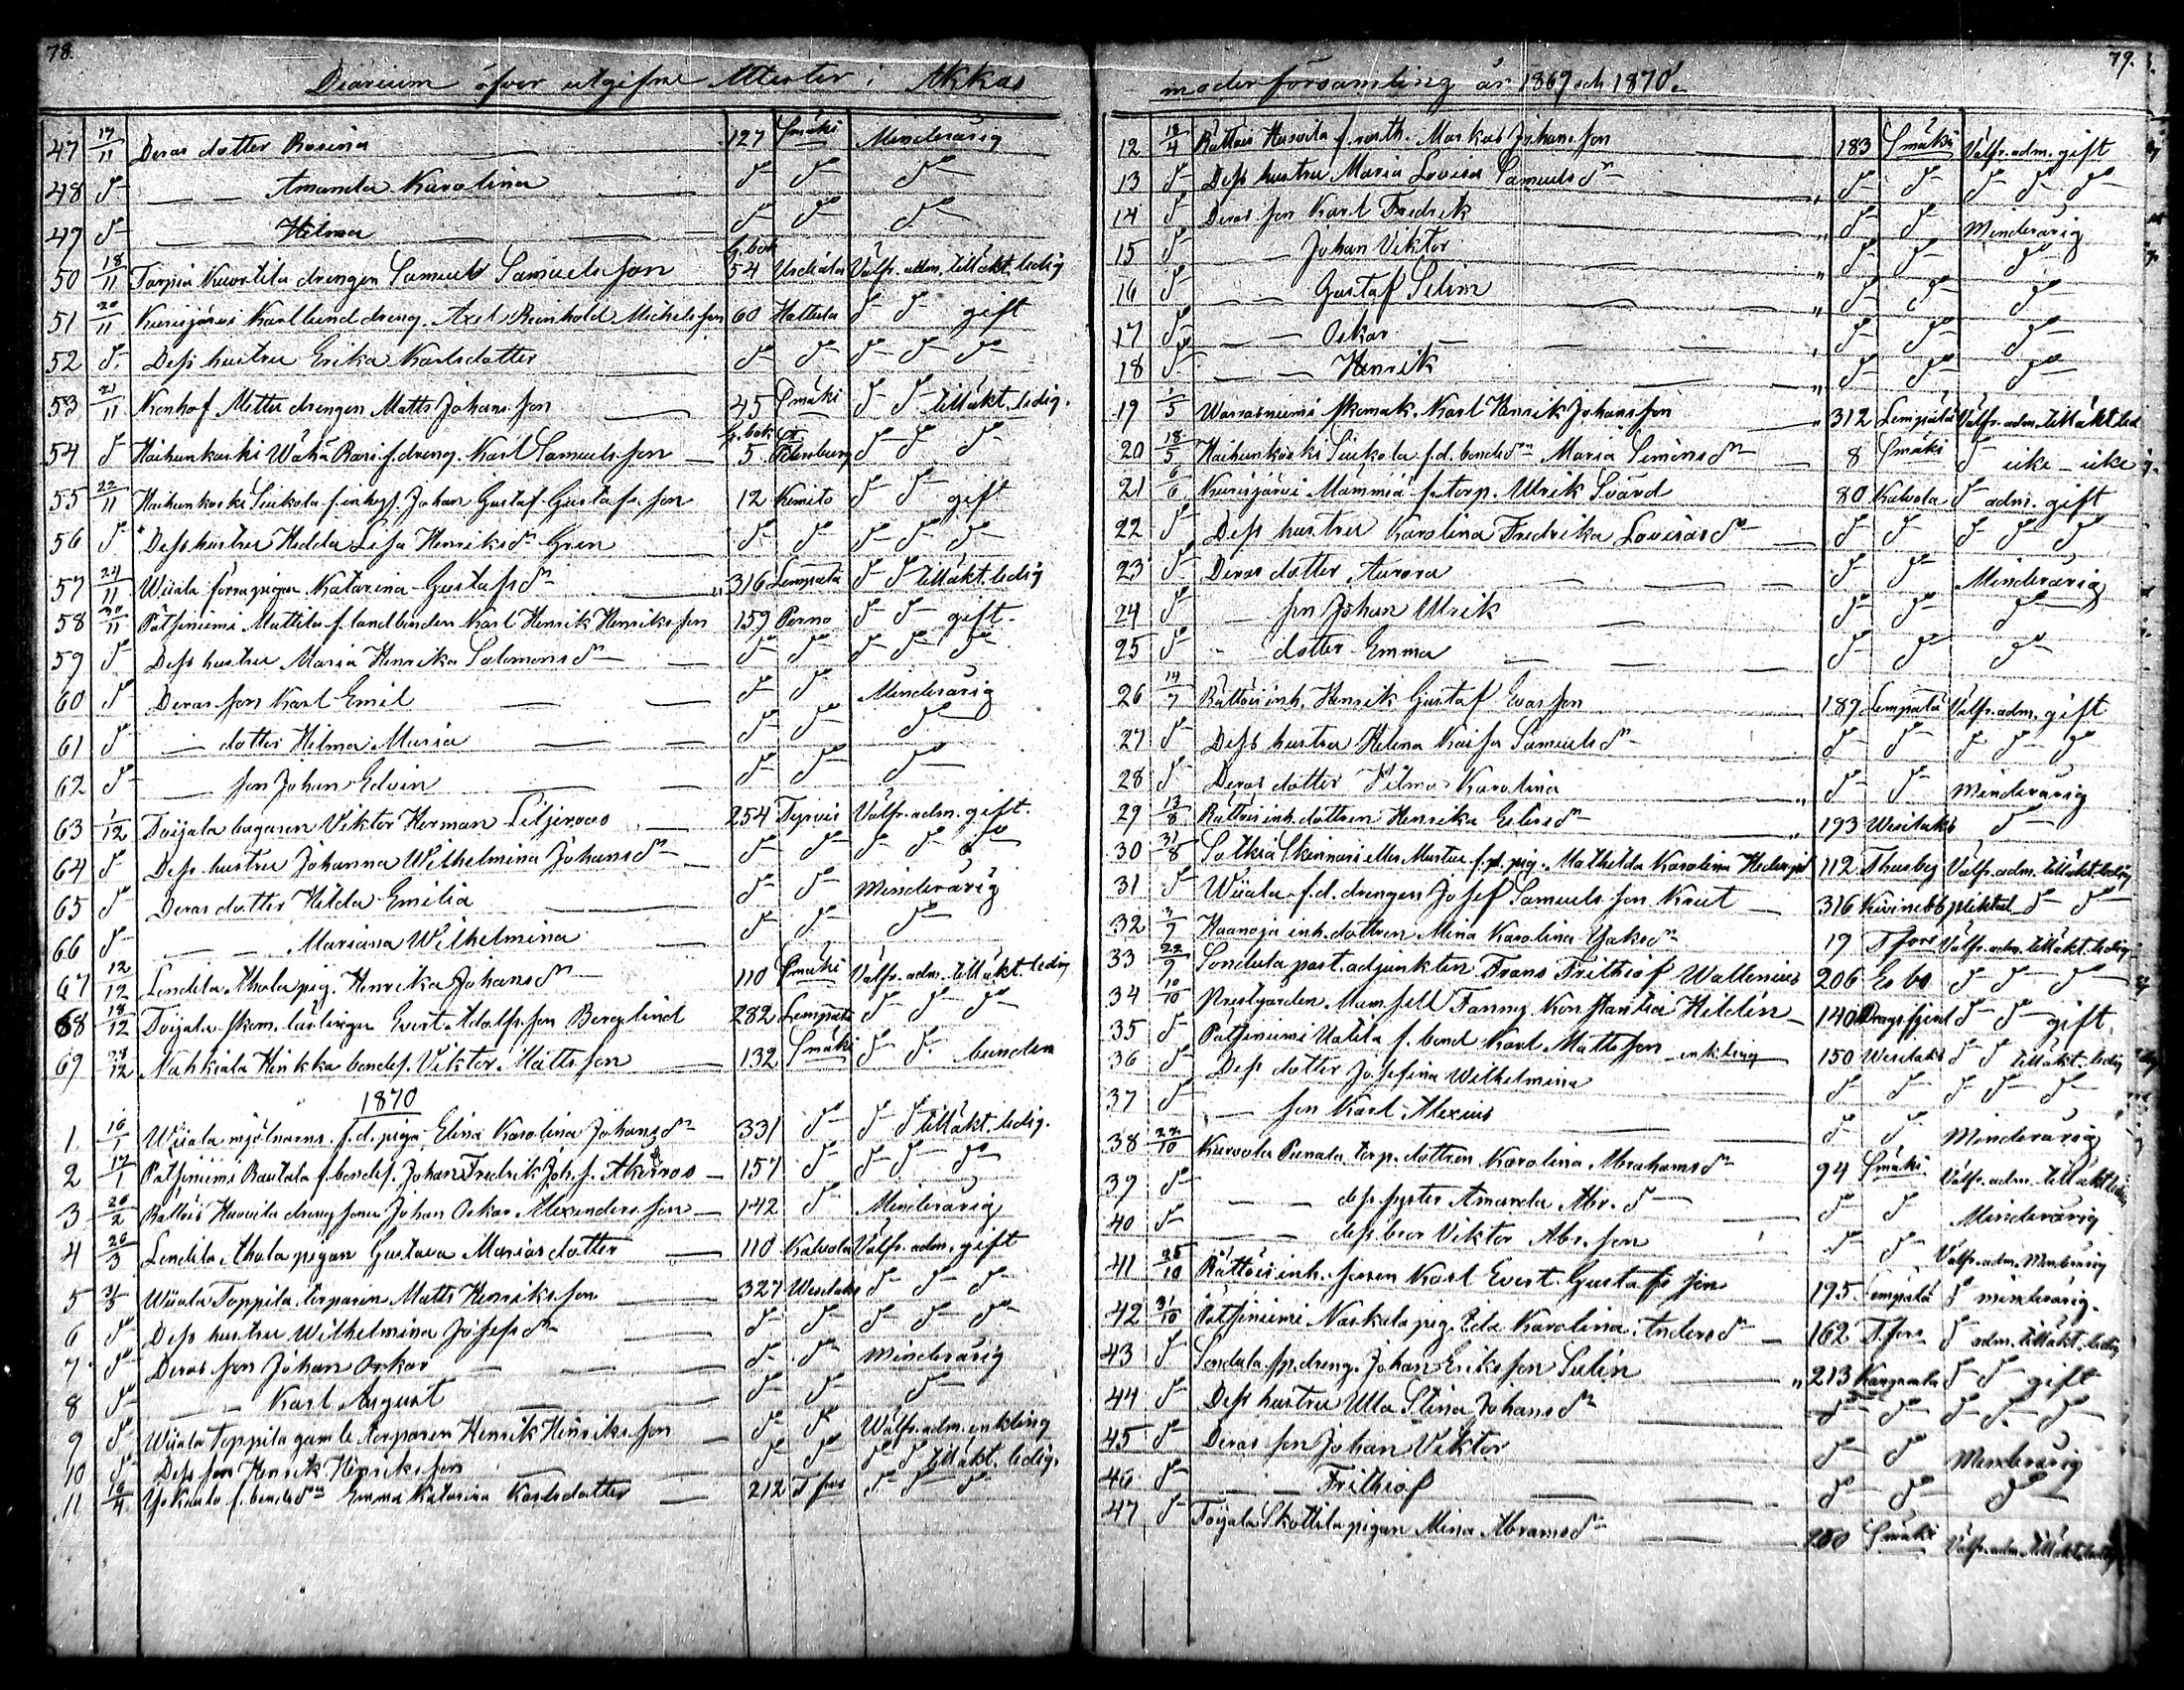 78.
Diarium öfver utgifne Attester i Akkas
47 17/11 Deras dotter Rosina 127 Smäki Minderårig
48 d- Amanda Karolina d- d- d-
49 d- Hilma d- d- d-
50 18/11 Tarpia Kuortila drengen Samuel Samuelsson K.bok 54 Urdiala Välfr. adm. tillåkt. ledig
51 20/11 Kurisjärvi Karllund dreng. Axel Reinhold Michelsson 60 Hattula d- d- gift
52 d- Dess hustru Erika Karlsdotter d- d- d- d- d-
53 21/11 Konhof Mettu drengen Matts Johansson 45 Smäki d- d- tillåkt. ledig.
54 d- Haihunkoski Wähä Rasi f. dreng. Karl Samuelsson K.bok 5 St Petersburg d- d- d-
55 22/11 Haihunkoski Siukola f. inhys. Johan Gustaf Gustafsson 12 Kimito d- d- gift
56 d- Dess hustru Hedda Lisa Henriksdr Gren d- d- d- d- d-
57 24/11 Wiiala forra pigan Katarina Gustafsdr " 316 Lempälä d- d- tillåkt. ledig
58 30/11 Pätsiniemi Mattila f. landbonden Karl Henrik Henriksson 159 Perno d- d- gift.
59 d- Dess hustru Maria Henrika Salomonsdr d- d- d- d- d-
60 d- Deras son Karl Emil d- d- Minderårig
61 d- dotter Hilma Maria d- d- d-
62 d- son Johan Edvin d- d- d-
63 1/12 Toijala bagaren Viktor Herman Liljeroos 254 Tyrvis Välfr. adm. gift.
64 d- Dess hustru Johanna Wilhelmina Johansdr d- d- d- d- d-
65 d- Deras dotter Hilda Emilia d- d- minderårig
66 d- Mariana Wilhelmina d- d- d-
67 12/12 Lendila Ahola pig. Henrika Johansdr 110 Smäki Välfr. adm. tillåkt. ledig
68 18/12 Toijala skom. lärlingen Evert Adolfsson Berglind 282 Lempälä d- d- d-
69 28/12 Nahkiala Heikka bondes. Viktor Mattsson 132 Smäki d- d- bunden
1870
1. 16/1 Wiiala mjölnarns f.d. piga Elina Karolina Johansdr 331 d- d- d- tillåkt. ledig.
2 17/1 Pätsiniemi Rautala f. bondes. Johan Fredrik Joh. s. Akerroos 157 d- d- d- d-
3 26/2 Rättöis Hurvila dreng sonen Johan Oskar Alexandersson 142 d- Minderårig
4 26/3 Lendila Ahola pigan Gustava Mariasdotter 110 Kalvola Välfr. adm. gift
5 31/3 Wiiala Toppila torparen Matts Henriksson 327 Wesilaks d- d- d-
6 d- Dess hustru Wilhelmina Josefsdr d- d- d- d- d-
7 d- Deras son Johan Oskar d- d- minderårig
8 d- Karl August d- d- d-
9 d- Wiiala Toppila gamle torparen Henrik Henriksson d- d- Wälfr. adm. enkling
10 d- Dess son Henrik Henriksson d- d- d- d- tillåkt. ledig.
11 16/4 f. bondedr Emma Katarina Karlsdotter 212 T.fors d- d- d-
79.
moderförsamling år 1869 och 1870.
12 18/4 Rättöis Hurvila f. Markus Johansson 183 Smäki Välfr. adm. gift
13 d- Dess hustru Maria Lovisa Samuelsdr " d- d- d- d- d-
14 d- Deras son Karl Fredrik " d- d- Minderårig
15 d- Johan Viktor " d- d- d-
16 d- Gustaf Selim " d- d- d-
17 d- Oskar " d- d- d-
18 d- Henrik " d- d- d-
19 1/5 Warrasniemi skomak. Karl Henrik Johansson " 312 Lempälä Välfr. adm. tillåkt led
20 18/5 Haihunkoski Siukola f.d. bondedr Maria Simonsdr 8 Smäki d- icke - icke
21 6/6 Kurisjärvi Mämmiä f. torp. Ulrik Svärd 80 Kalvola d- adm. gift
22 d- Dess hustru Karolina Fredrika Lovisasdr d- d- d- d- d-
23 d- Deras dotter Aurora d- d- Minderårig
24 d- son Johan Ulrik d- d- d-
25 d- dotter Emma d- d- d-
26 14/7 Rättöis inh. Henrik Gustaf Evasson 189 Lempälä Välfr. adm. gift
27 d- Dess hustru Helena Kaisa Samuelsdr d- d- d- d- d-
28 d- Deras dotter Hilma Karolina " d- d- Minderårig
29 13/8 Rättöis inh. dottren Henrika Eliasdr " 193 Wesilaks d-
30 31/8 Sotkia Skinnari eller Mustue f.d. pig. Mathilda Karolina 112 Thusby Välfr. adm. tillåkt. ledig
31 d- Wiiala f.d. drengen Josef Samuelsson Kraut 316 Kivinebb d- d-
32 3/9 Haanoja inh. dottren Mina Karolina Isaksdr 19 T.fors Välfr. adm. tillåkt. ledig
33 22/9 Sondula past. adjunkten Frans Frithiof Wallenius 206 Esbo d- d- d-
34 10/10 Prestgården Mamsell Fanny Konstantia Hildén 140 Dragsfjerd d- d- gift.
35 d- Pätsiniemi Uotila f. bond Karl Mattsson enkling 150 Wesilaks d- d- tillåkt. ledig
36 d- Dess dotter Josefina Wilhelmina d- d- d- d- d-
37 d- son Karl Alexius d- d- Minderårig
38 22/10 Kurvola Punala torp. dottren Karolina Abrahamsdr 94 Smäki Välfr. adm. tillåkt ledig
39 d- dess syster Amanda Abr. d- d- d- Minderårig
40 d- dess bror Viktor Abr. son d- d- Välfr. adm. Minderårig
41 25/10 Rättöis inh. sonen Karl Evert Gustafsson 195 Lempälä d- minderårig.
42 31/10 Pätsiniemi Naskala pig. Ida Karolina Andersdr 162 T.fors d- adm. tillåkt. ledig
43 d- Sondula sp. dreng. Johan Eriksson Sulin " 213 Kangasala d- d- gift
44 d- Dess hustru Ulla Stina Johansdr d- d- d- d- d-
45 d- Deras son Johan Viktor d- d- Minderårig
46 d- Frithiof d- d- d-
47 d- Toijala Skottila pigan Mina Abramsdr 250 Smäki Välfr. adm. tillåkt. ledig